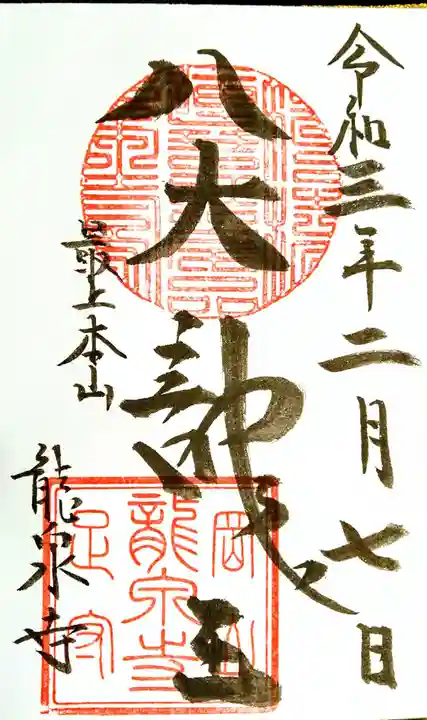 令和三年二月七日
八大龍王
最上本山
龍泉寺
岡山
龍泉寺
足守